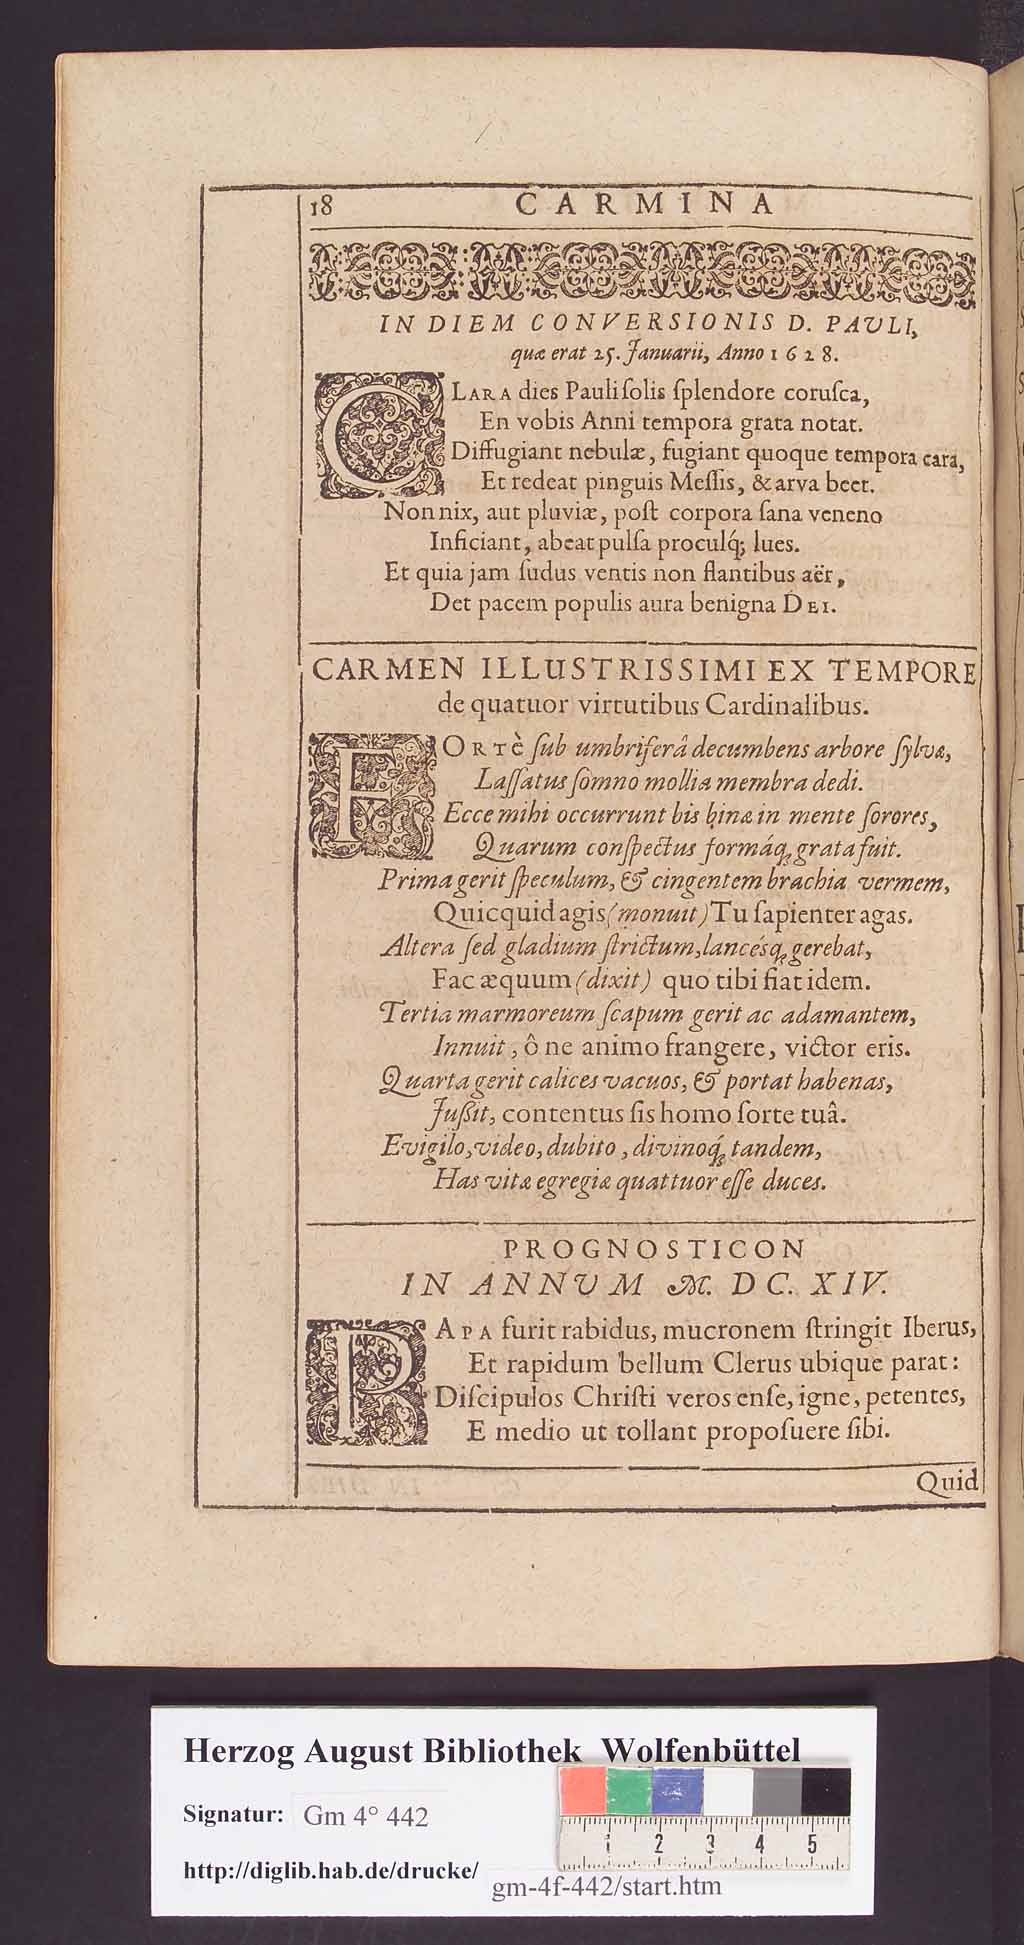 18 CARMINA
IN DIEM CONVERSIONIS D. PAVLI,
quæ erat 25. Januarii, Anno 1628.
CLARA dies Pauli ſolis ſplendore coruſca,
En vobis Anni tempora grata notat.
Diffugiant nebulæ, fugiant quoque tempora cara,
Et redeat pinguis Meſſis, & arva beet.
Non nix, aut pluviæ, poſt corpora ſana veneno
Inficiant, abeat pulſa proculq́; lues.
Et quia jam ſudus ventis non flantibus aër,
Det pacem populis aura benigna DEI.
CARMEN ILLUSTRISSIMI EX TEMPORE
de quatuor virtutibus Cardinalibus.
FORTè ſub umbriferâ decumbens arbore ſylvæ,
Laſſatus ſomno mollia membra dedi.
Ecce mihi occurrunt bis binæ in mente ſorores,
Quarum conſpectus formáq; grata fuit.
Prima gerit ſpeculum, & cingentem brachia vermem,
Quicquid agis (monuit) Tu ſapienter agas.
Altera ſed gladium ſtrictum, lancésq; gerebat,
Fac æquum (dixit) quo tibi fiat idem.
Tertia marmoreum ſcapum gerit ac adamantem,
Innuit, ô ne animo frangere, victor eris.
Quarta gerit calices vacuos, & portat habenas,
Juſſit, contentus ſis homo ſorte tuâ.
Evigilo, video, dubito, divinoq́; tandem,
Has vitæ egregiæ quattuor eſſe duces.
PROGNOSTICON
IN ANNVM M. DC. XIV.
PAPA furit rabidus, mucronem ſtringit Iberus,
Et rapidum bellum Clerus ubique parat:
Diſcipulos Chriſti veros enſe, igne, petentes,
E medio ut tollant propoſuere ſibi.
Quid
Herzog August Bibliothek Wolfenbüttel
Signatur: Gm 4° 442
http://diglib.hab.de/drucke/ gm-4f-442/start.htm
1 2 3 4 5